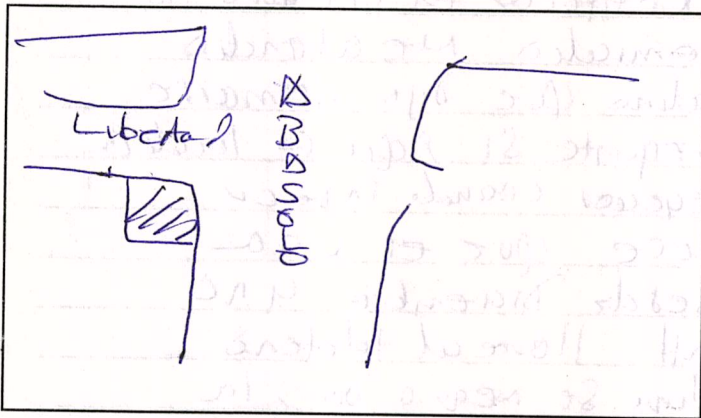 Libertad
ABASOLO